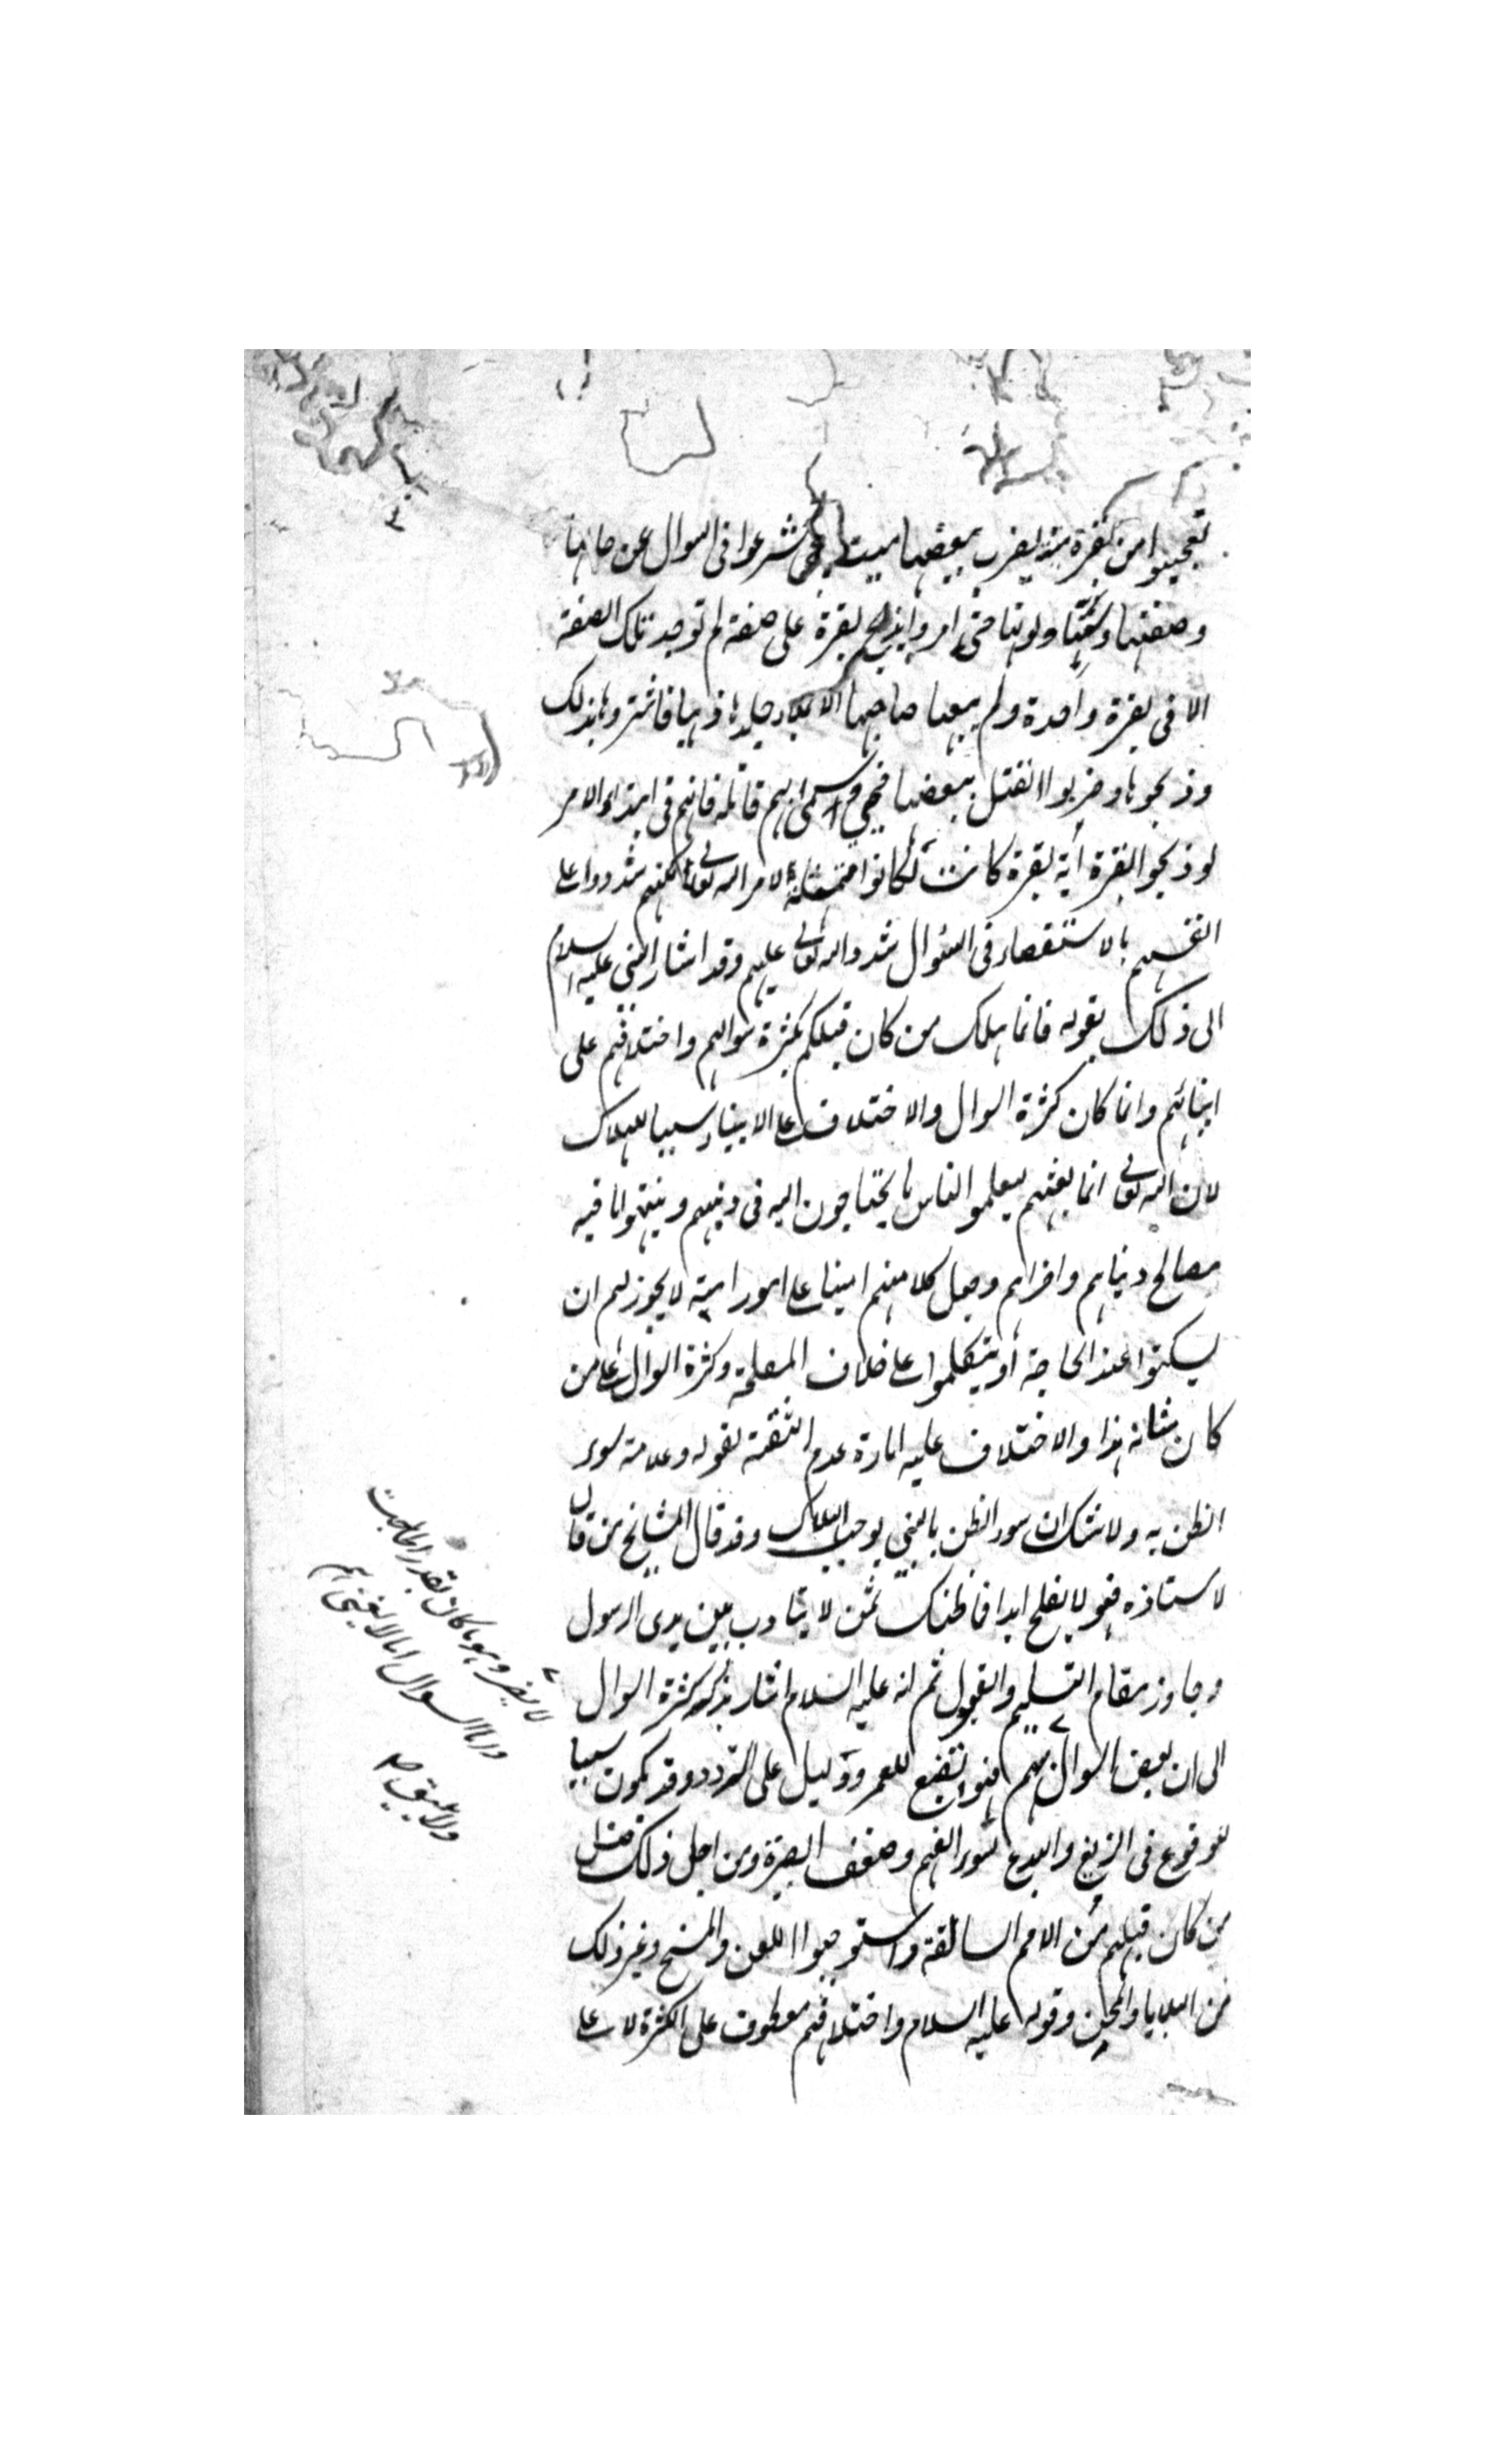 تعجبوا من بقرة ميتة يضرب ببعضها ميت فيحى شرعوا فى السوال عن حالها
وصفتها وسنها ولونها حتى امروا بذبح بقرة على صفة لم توجد تلك الصفة
الا فى بقرة واحدة ولم يبعها صاحبها الا بملاء جلدها ذهبا فاشتروها بذلك
وذبحوها وضربوا القتيل ببعضها فحيى واسمى لهم قاتله فانهم فى ابتداء الامر
لو ذبحوا البقرة أية بقرة كانت لكانوا ممتثلة لامر الله تعالى لكنهم شددوا على
انفسهم بالاستقصاء فى السئوال شدد الله تعالى عليهم وقد اشار النبى عليه السلام
الى ذلك بقوله فانما هلك من كان قبلكم بكثرة سوالهم واختلافهم على
انبيائهم وانما كان كثرة السوال والاختلاف على الانبياء سببا للهلاك
لان الله تعالى انما بعثهم ليعلموا الناس ما يحتاجون اليه فى دينهم وينتهوا لما فيه
مصالح دنياهم واخراهم وجعل كلا منهم امينا على امور امته لا يجوز لهم ان
يسكتوا عند الحاجة أو يتكلموا على خلاف المصلحة وكثرة السوال على من
كان شانه هذا والاختلاف عليه امارة عدم الثقة بقوله وعلامة سوء
الظن به ولا شك ان سوء الظن بالنبى يوجب الهلاك وقد قال المشايخ من قال
لاستاذه لم فهو لا يفلح ابدا فما ظنك بمن لا يتادب بين يدى الرسول
وجاوز مقام التسليم والقبول ثم انه عليه السلام اشار بذكر كثرة السوال
الى ان بعض السوال منهم فهو تضييع للعمر ودليل على التردد وقد يكون سببا
للوقوع فى الزيغ والبدع لسوء الفهم وضعف البصيرة ومن اجل ذلك ضل
من كان قبلهم من الامم السالفة واستوجبوا اللعن والمسخ وغير ذلك
من البلايا والمحن وقوله عليه السلام واختلافهم معطوف على الكثرة لا على
لا يضر وهو ما كان بقدر الحاجة
واما السوال لما لا يعنيهم
ولا يليق صح